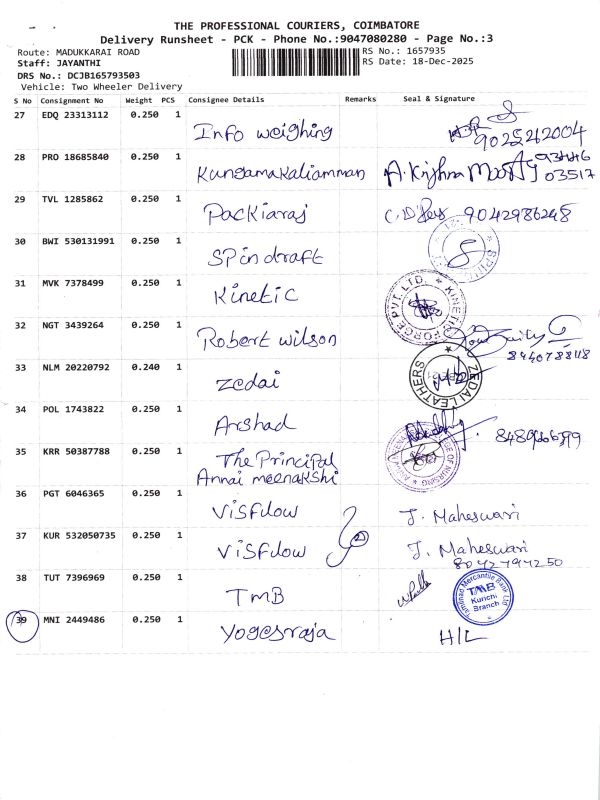 THE PROFESSIONAL COURIERS, COIMBATORE
Delivery Runsheet - PCK - Phone No.:9047080280 - Page No.:3
Route: MADUKKARAI ROAD RS No.: 1657935
Staff: JAYANTHI RS Date: 18-Dec-2025
DRS No.: DCJB165793503
Vehicle: Two Wheeler Delivery
S No Consignment No Weight PCS Consignee Details Remarks Seal & Signature
27 EDQ 23313112 0.250 1 Info weighing
28 PRO 18685840 0.250 1 Kungamakaliamman A. Krishna Moorthy 93446 03517
29 TVL 1285862 0.250 1 Packiaraj 9042986248
30 BWI 530131991 0.250 1 Spindraft
31 MVK 7378499 0.250 1 Kinetic KINETIC FORGE PVT. LTD.
32 NGT 3439264 0.250 1 Robert wilson
33 NLM 20220792 0.240 1 Zedai ZEDAI LEATHERS
34 POL 1743822 0.250 1 Arshad
35 KRR 50387788 0.250 1 The Principal
Annai meenakshi
36 PGT 6046365 0.250 1 Visflow J. Maheswari
37 KUR 532050735 0.250 1 Visflow 2 J. Maheswari
8042797250
38 TUT 7396969 0.250 1 TMB Tamilnad Mercantile Bank Ltd TMB Kurichi Branch
39 MNI 2449486 0.250 1 Yogesraja H/L